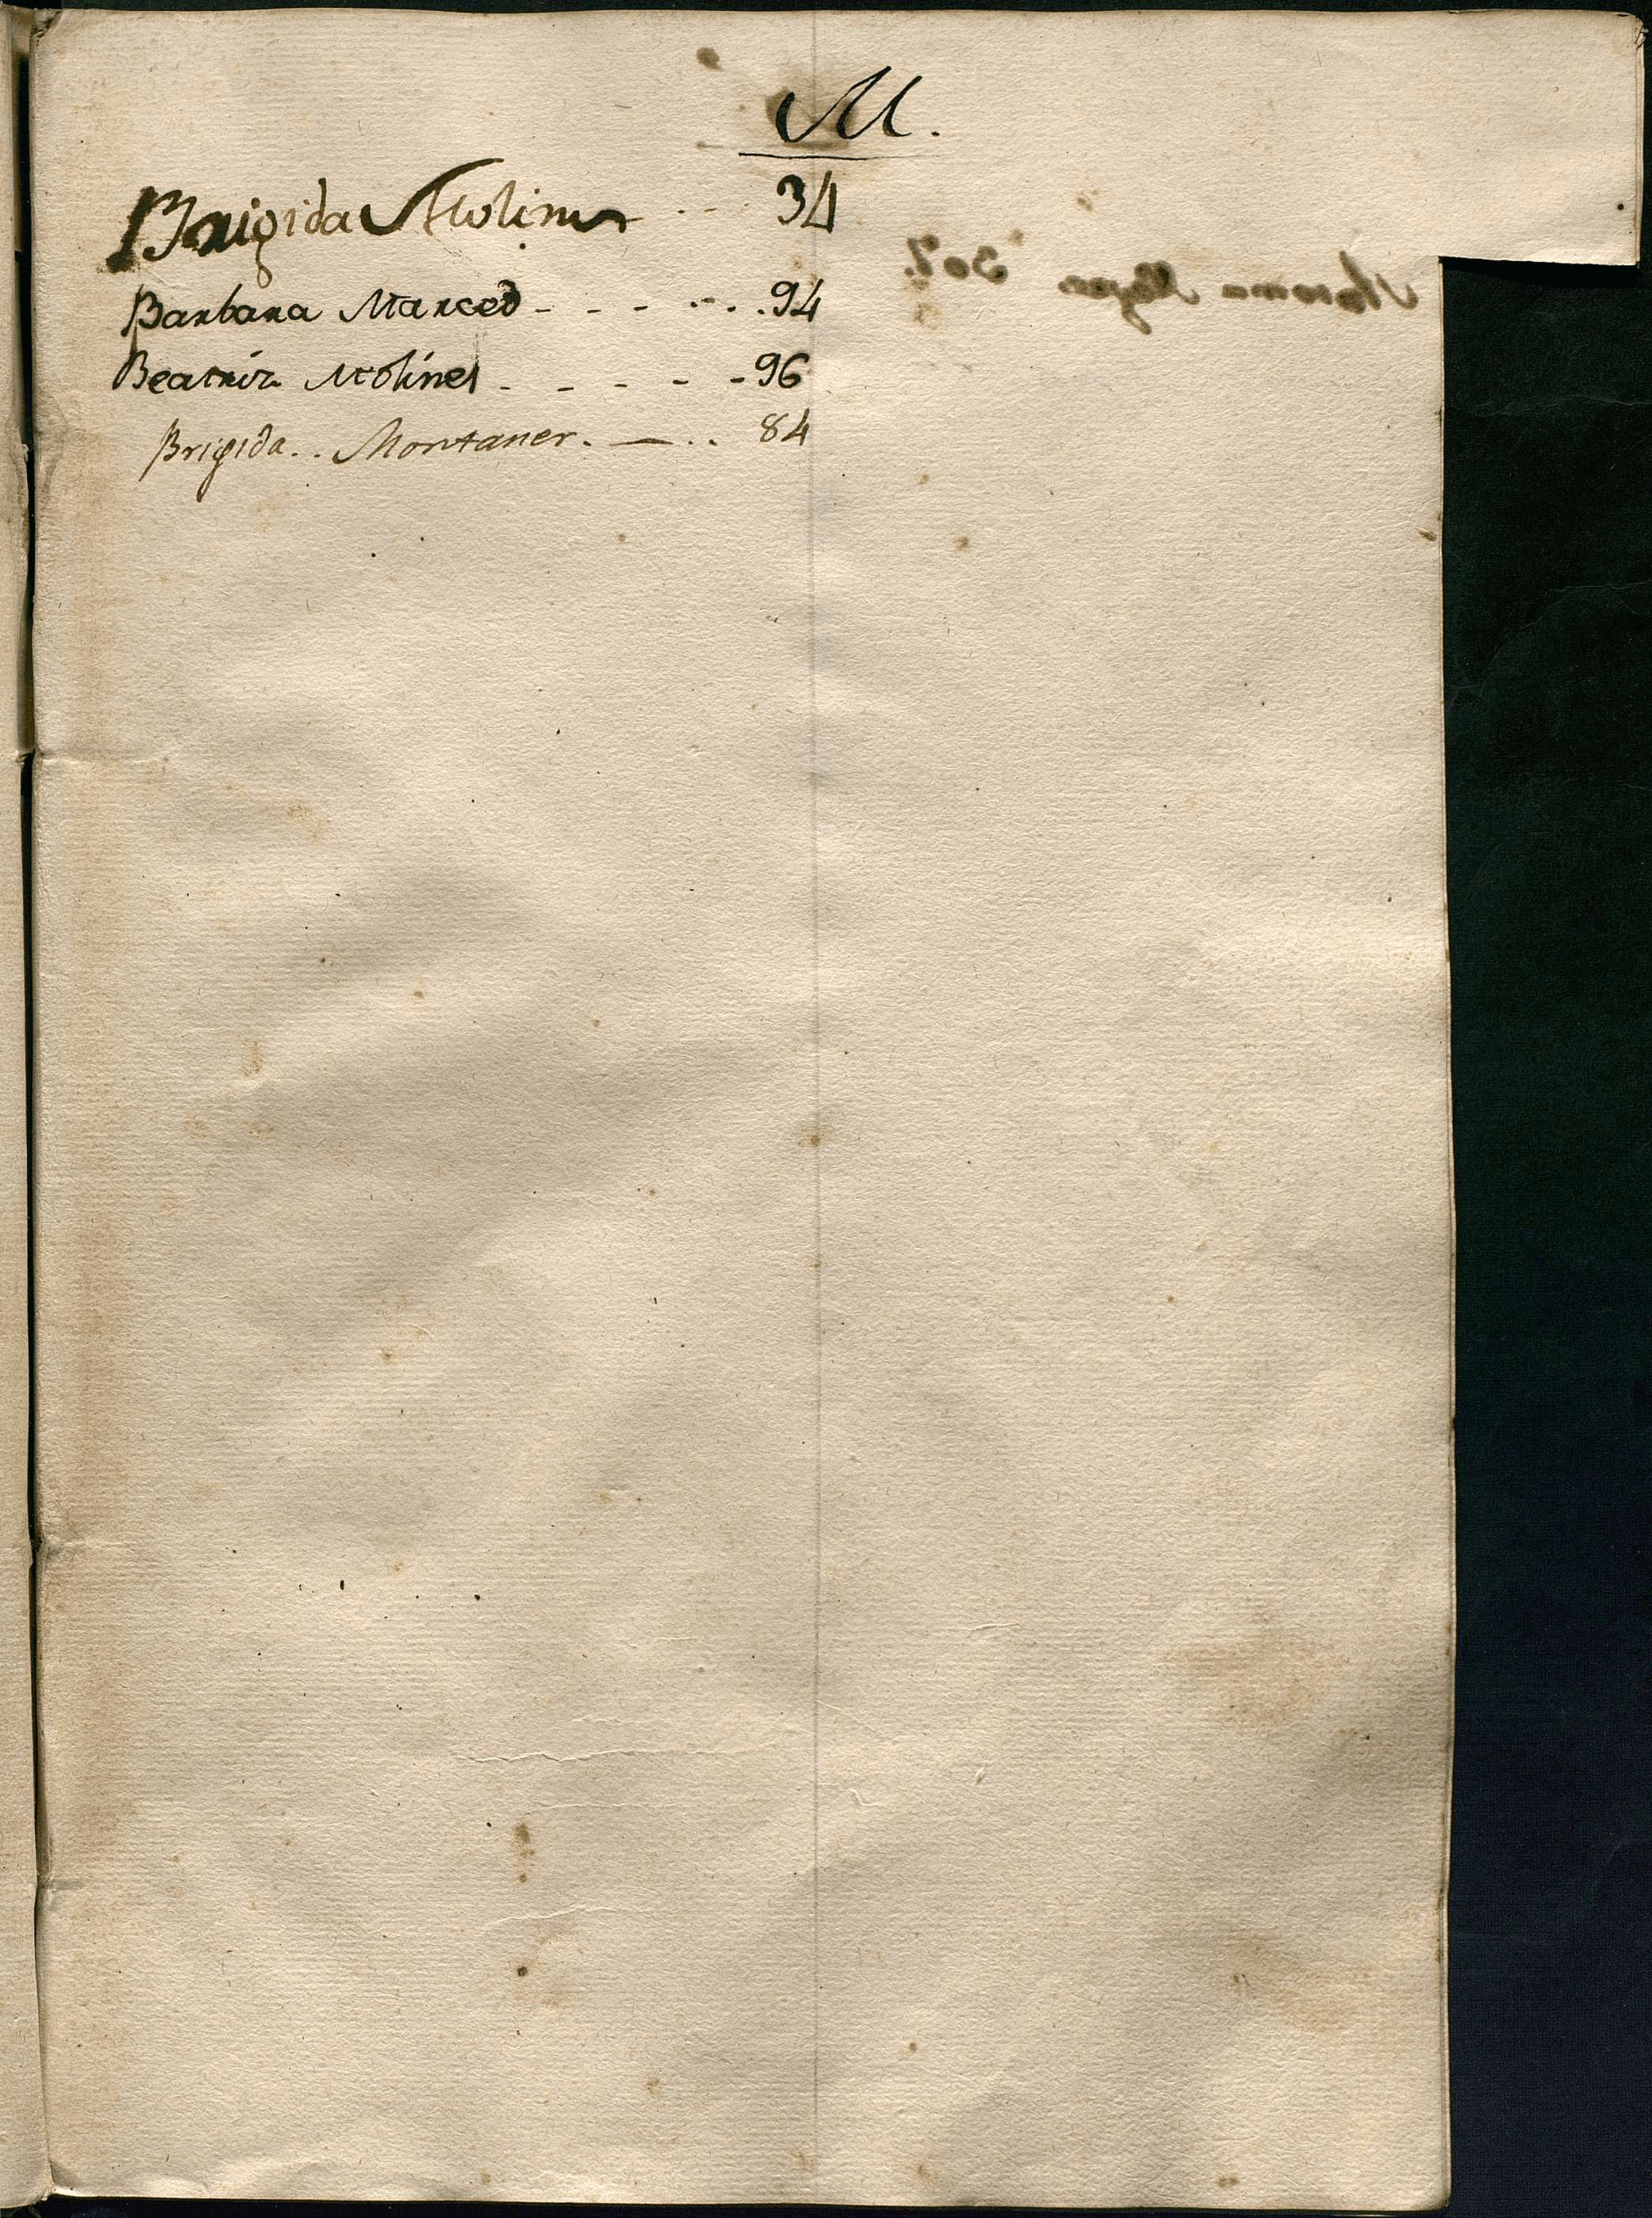 M.
Brigida Molina - - - 34
Barbara Marced - - - - - . . 94
Beatriz Molines - - - - - 96
Brigida . . Montaner . — . . 84